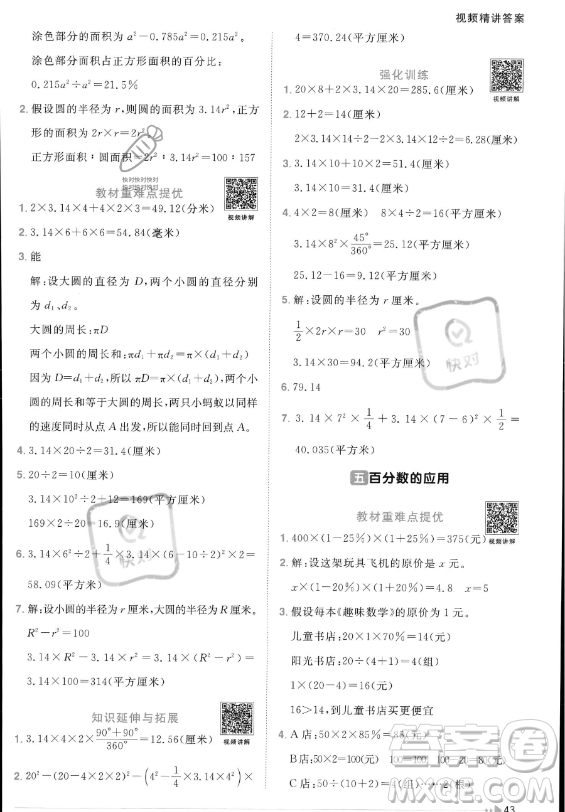 视频精讲答案
涂色部分的面积为 a²－0.785a²＝0.215a²
涂色部分的面积占正方形面积的百分比：
0.215a²÷a²＝21.5%
2. 假设圆的半径为 r，则圆的面积为 3.14r²，正方
形的面积为 2r×r＝2r²
正方形面积∶圆面积＝2r²∶3.14r²＝100∶157
快对快对快对
快对快对快对
教材重难点提优
视频讲解
1. 2×3.14×4＋4×2×3＝49.12(分米)
2. 3.14×6＋6×6＝54.84(毫米)
3. 能
解：设大圆的直径为 D，两个小圆的直径分别
为 d₁、d₂。
大圆的周长：πD
两个小圆的周长和：πd₁＋πd₂＝π(d₁＋d₂)
因为 D＝d₁＋d₂，所以 πD＝π(d₁＋d₂)，大圆的
周长和等于大圆的周长，两只小蚂蚁以同样的
速度同时从点 A 出发，所以能同时回到点 A。
4. 3.14×20÷2＝31.4(厘米)
5. 20÷2＝10(厘米)
3.14×10²÷2＋12＝169(平方厘米)
169×2＝338(平方厘米)
6. 3.14×6²÷2＋1/4×3.14×(6－10÷2)²÷2＝
58.09(平方分米)
7. 解：设小圆的半径为 r 厘米，大圆的半径为 R 厘米。
R²－r²＝100
3.14×R²－3.14×r²＝3.14×(R²－r²)＝
3.14×100＝314(平方厘米)
知识延伸与拓展
视频讲解
1. 3.14×4×2×(90°＋90°)/360°＝12.56(厘米)
4＝370.24(平方厘米)
强化训练
视频讲解
1. 20×8＋2×3.14×20＝285.6(厘米)
2. 12÷2＝
2×3.14×12÷2－3.14×12÷2＝6.28(厘米)
3. 3.14×10＋10×2＝51.4(厘米)
4. 4×2＝8(厘米)　8×4÷2＝16(平方厘米)
3.14×8²×45°/360°＝25.12(平方厘米)
25.12－16＝9.12(平方厘米)
5. 解：设圆的半径为 r 厘米。
1/2×2r×r＝30　r²＝30
3.14×30＝94.2(平方厘米)
6. 79.14
7. 3.14×7²×1/4＋3.14×(7－6)²×1/4＝
40.035(平方米)
五 百分数的应用
教材重难点提优
视频讲解
1. 400×(1－25%)×(1＋25%)＝375(元)
2. 解：设这架玩具飞机的原价是 x 元。
x×(1－20%)×(1＋20%)＝4.8　x＝5
3. 假设每本《趣味数学》的原价为 1 元。
儿童书店：20×1×80%＝16(元)
阳光书店：20÷(4＋1)＝4(组)
1×(4＋0.5)×4＝18(元)
16＞14，到儿童书店买更便宜
4. A 店：50×2×85%＝
B 店：50×2＝100(元)
C 店：50÷
43
快对
快对
答案圈